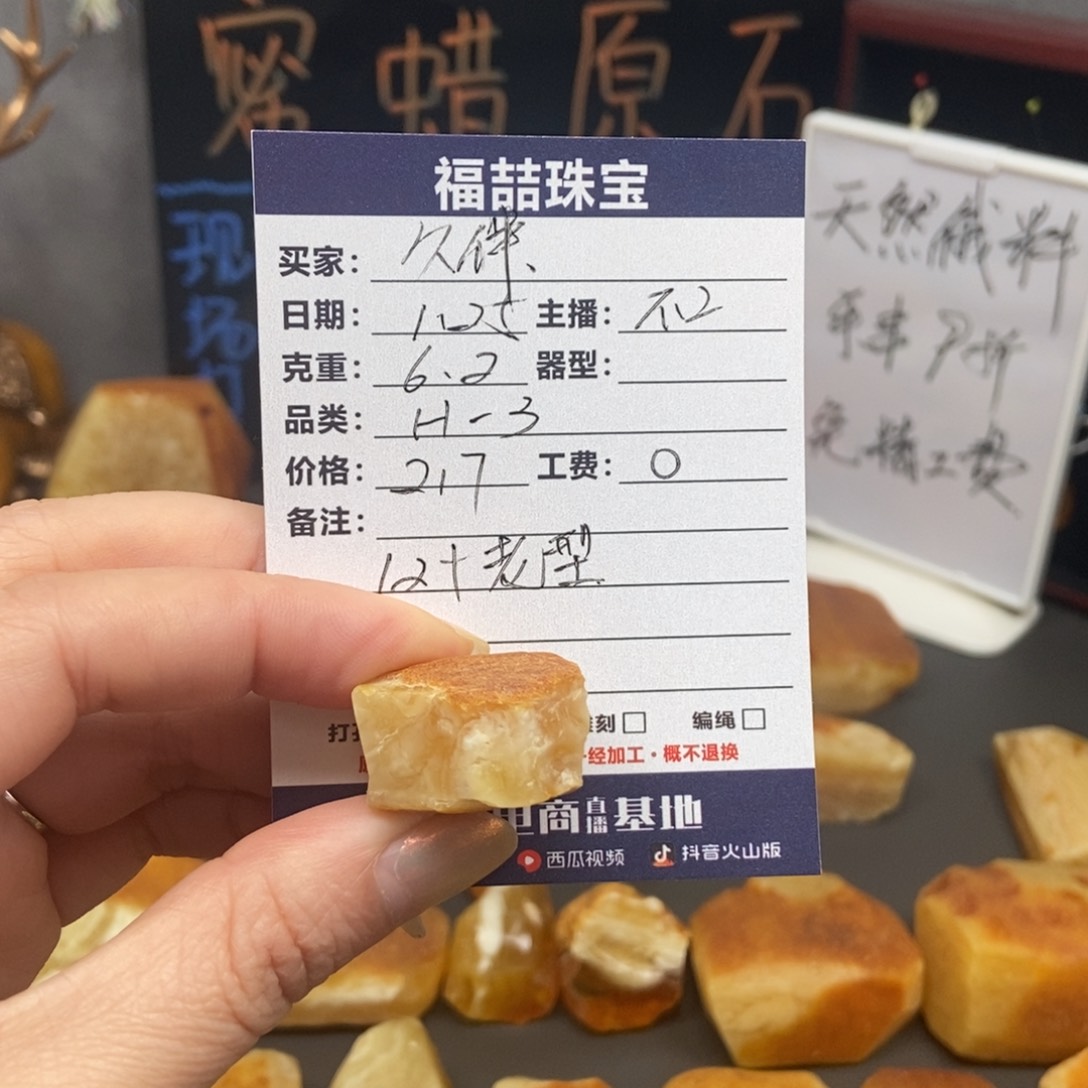 蜜蜡原石
现场
福喆珠宝
买家：久伴、
日期：1.25 主播：不2
克重：6.2 器型：
品类：H-3
价格：217 工费：0
备注：
12+老型
刻□ 编绳□
经加工·概不退换
电商直播基地
西瓜视频 抖音火山版
天然蜮料
免精工费